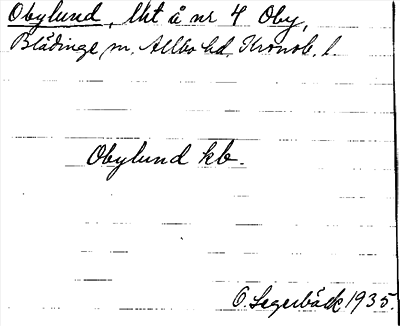 Obylund, lht å nr 4 Oby,
Blädinge sn, Allbo hd, Kronob. l.
Obylund kb.
O. Segerbäck 1935.